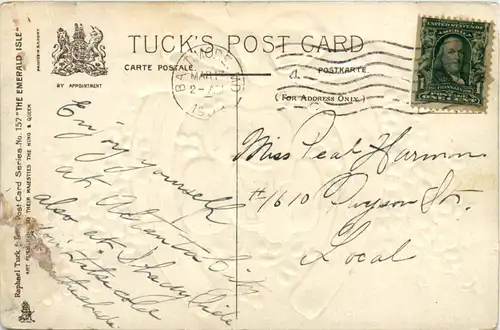 TUCK'S POST CARD
CARTE POSTALE.
POSTKARTE.
(FOR ADDRESS ONLY.)
BY APPOINTMENT
Raphael Tuck & Sons' Post Card Series No. 157 "THE EMERALD ISLE"
ART PUBLISHERS TO THEIR MAJESTIES THE KING & QUEEN
MAR
Enjoy yourself
at Atlantic City
also at Shady Side
Miss Pearl Harmon
#1610 Payson St.
Local